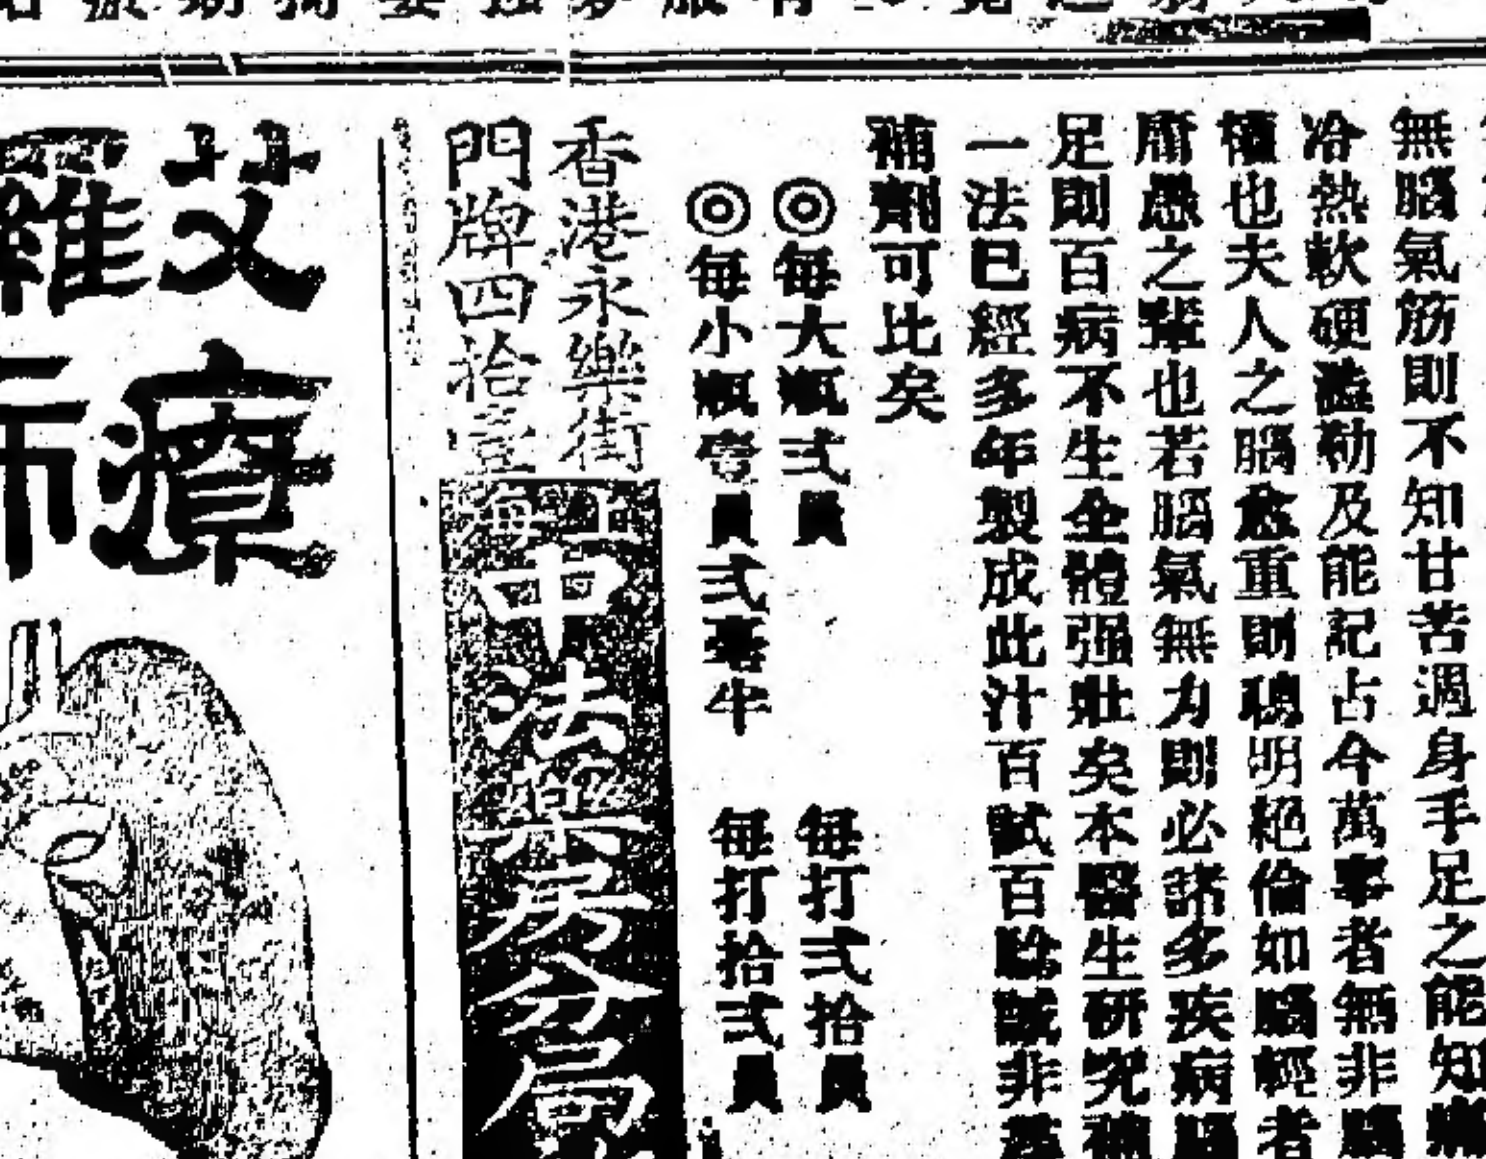 無腦氣筋則不知甘苦週身手足之能知痛
冷熱軟硬澁勒及能記占今萬事者無非腦
權也夫人之腦愈重則聰明絕倫如腦輕者
庸愚之輩也若腦氣無力則必諸多疾病腦
足則百病不生全體强壯矣本醫生研究補
一法已經多年製成此汁百試百驗誠非
補劑可比矣
◎每大瓶弍員 每打弍拾員
◎每小瓶壹員弍毫半 每打拾弍員
香港永樂街
門牌四拾壹
上海
中法藥房分局
艾羅
療肺